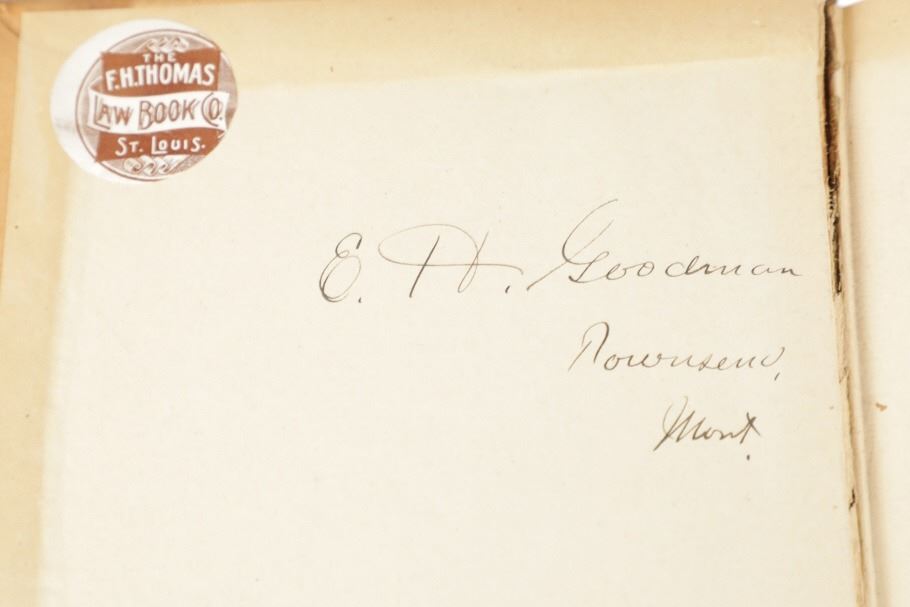 THE
F.H.THOMAS
LAW BOOK CO.
ST. LOUIS.
E. H. Goodman
Townsend,
Mont.